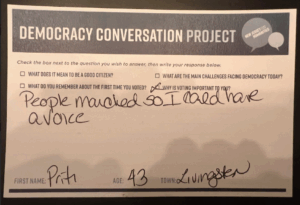 DEMOCRACY CONVERSATION PROJECT
Check the box next to the question you wish to answer, then write your response below.
☐ WHAT DOES IT MEAN TO BE A GOOD CITIZEN? ☐ WHAT ARE THE MAIN CHALLENGES FACING DEMOCRACY TODAY?
☐ WHAT DO YOU REMEMBER ABOUT THE FIRST TIME YOU VOTED? ☒ WHY IS VOTING IMPORTANT TO YOU?
People marched so I could have
a voice
FIRST NAME: Priti AGE: 43 TOWN: Livingston